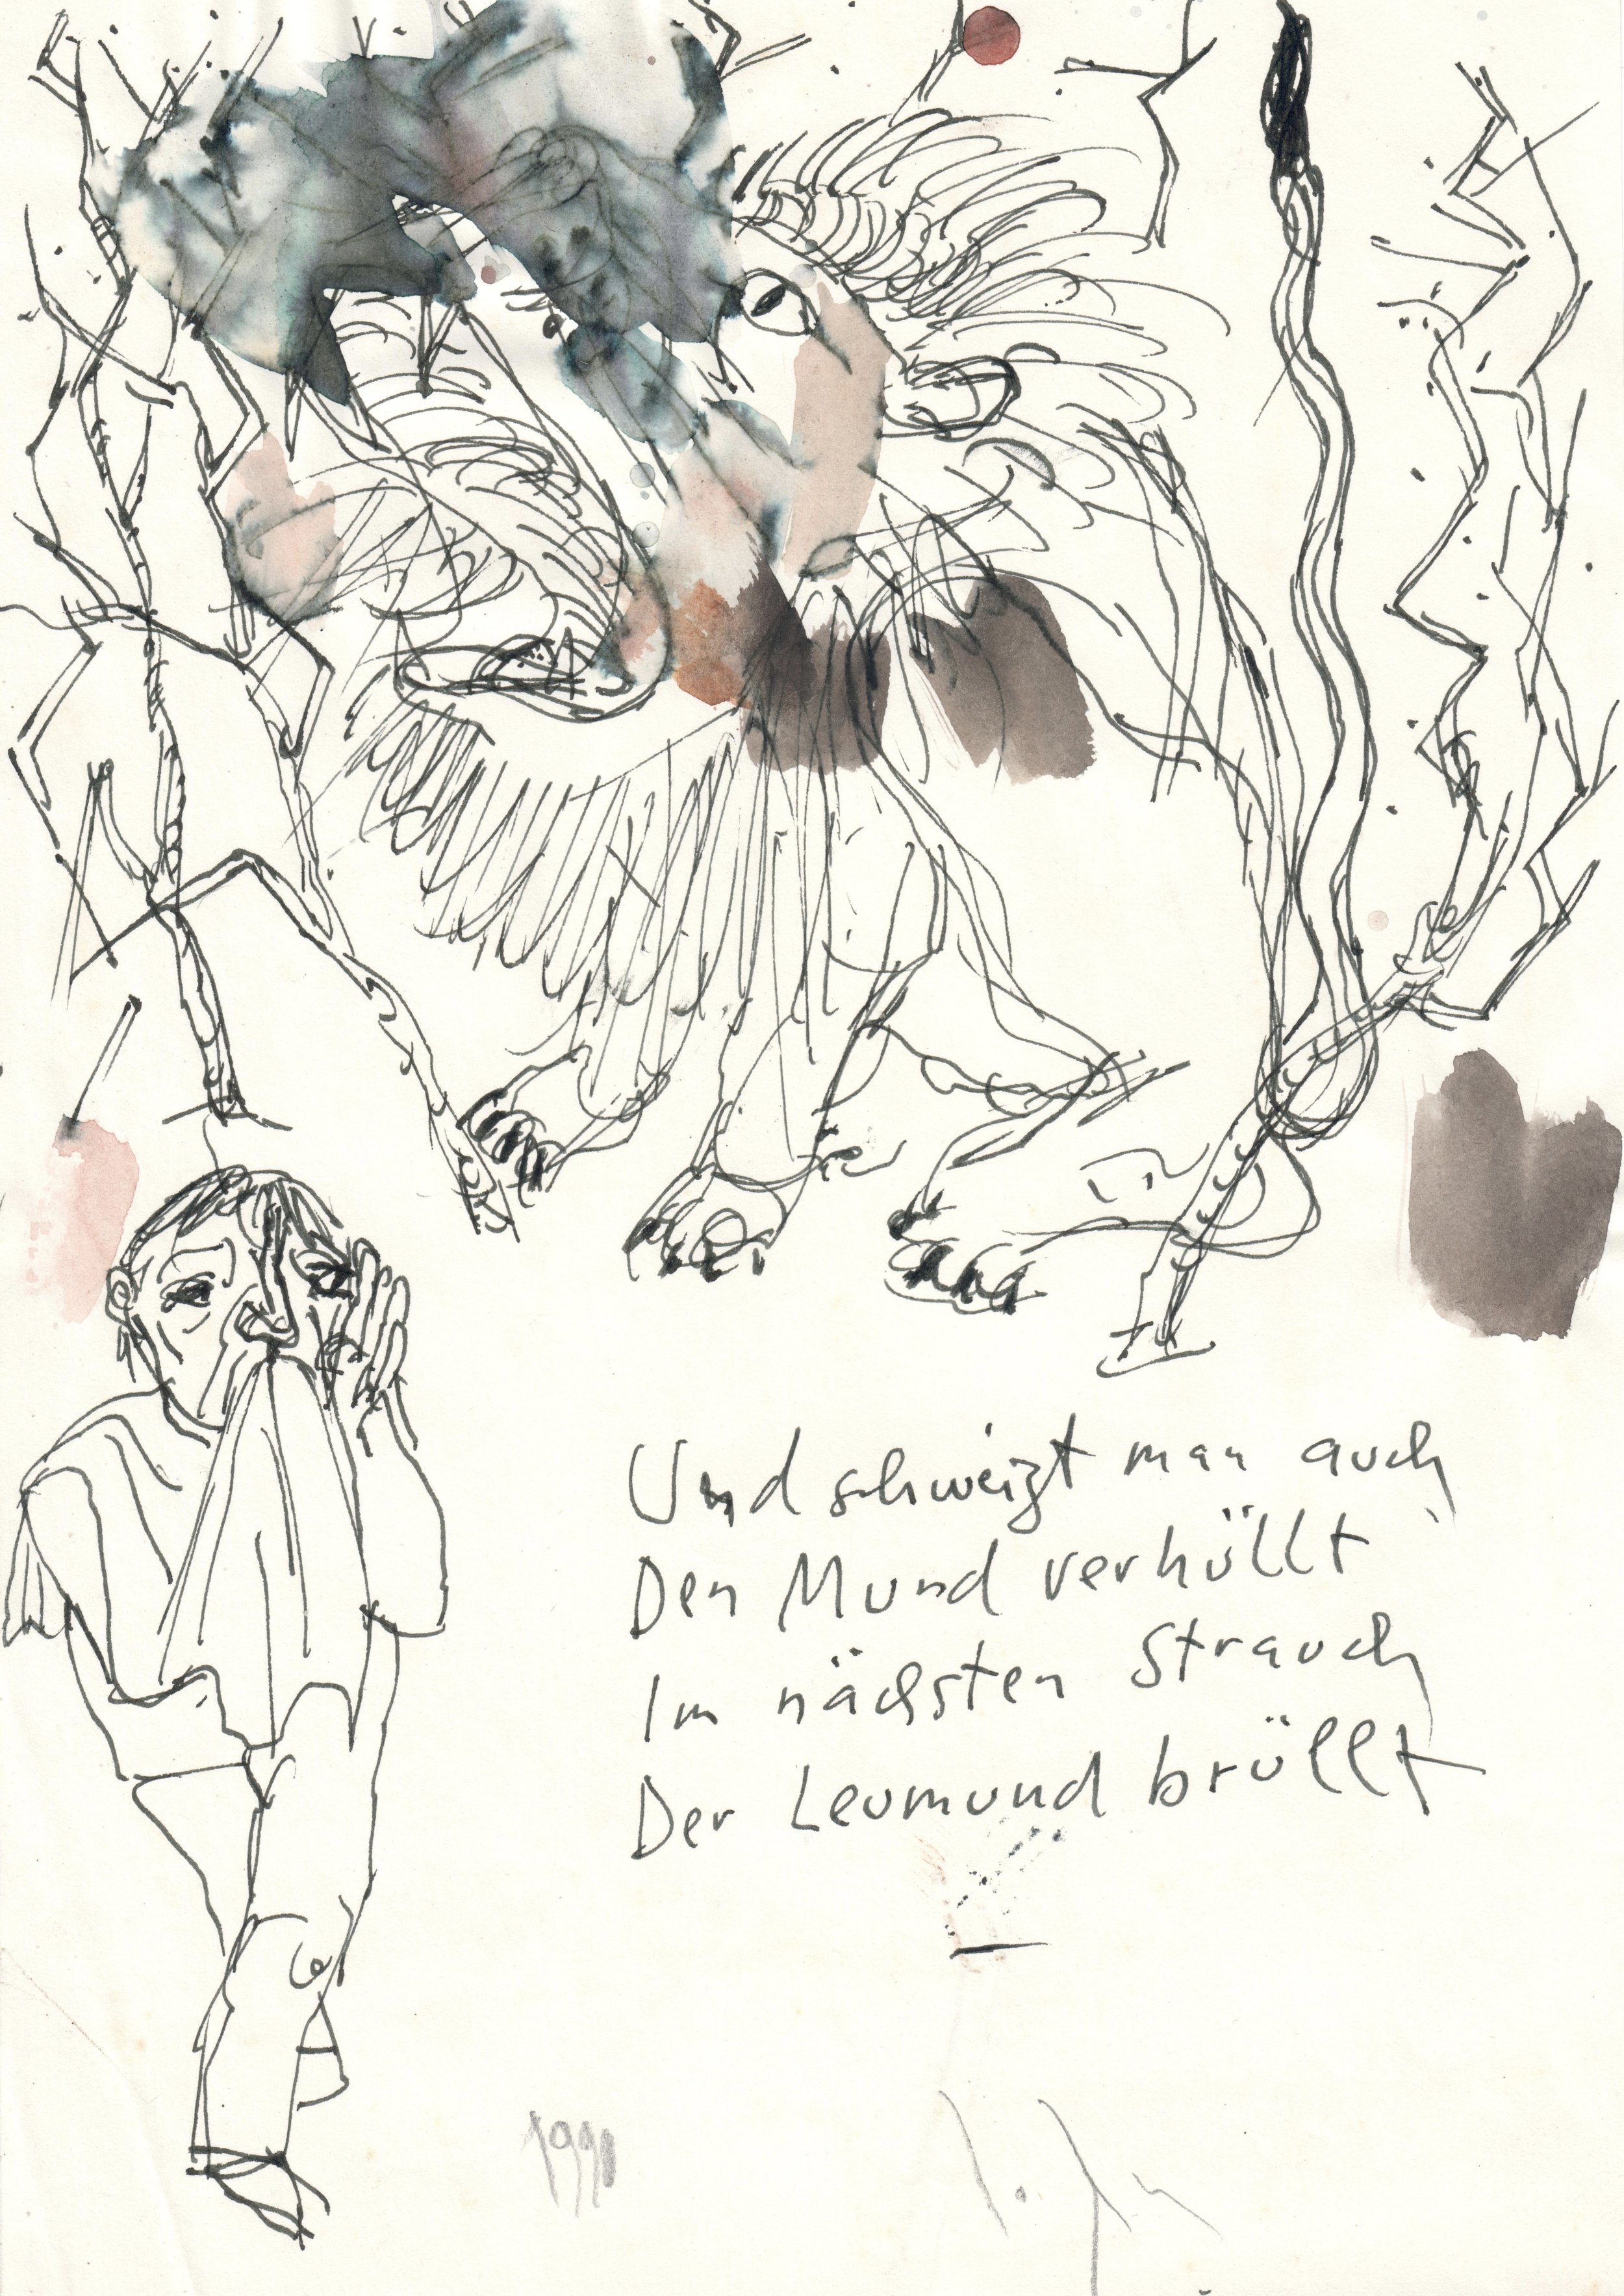 Und schweigt man auch
Den Mund verhüllt
Im nächsten Strauch
Der Leumund brüllt
1990